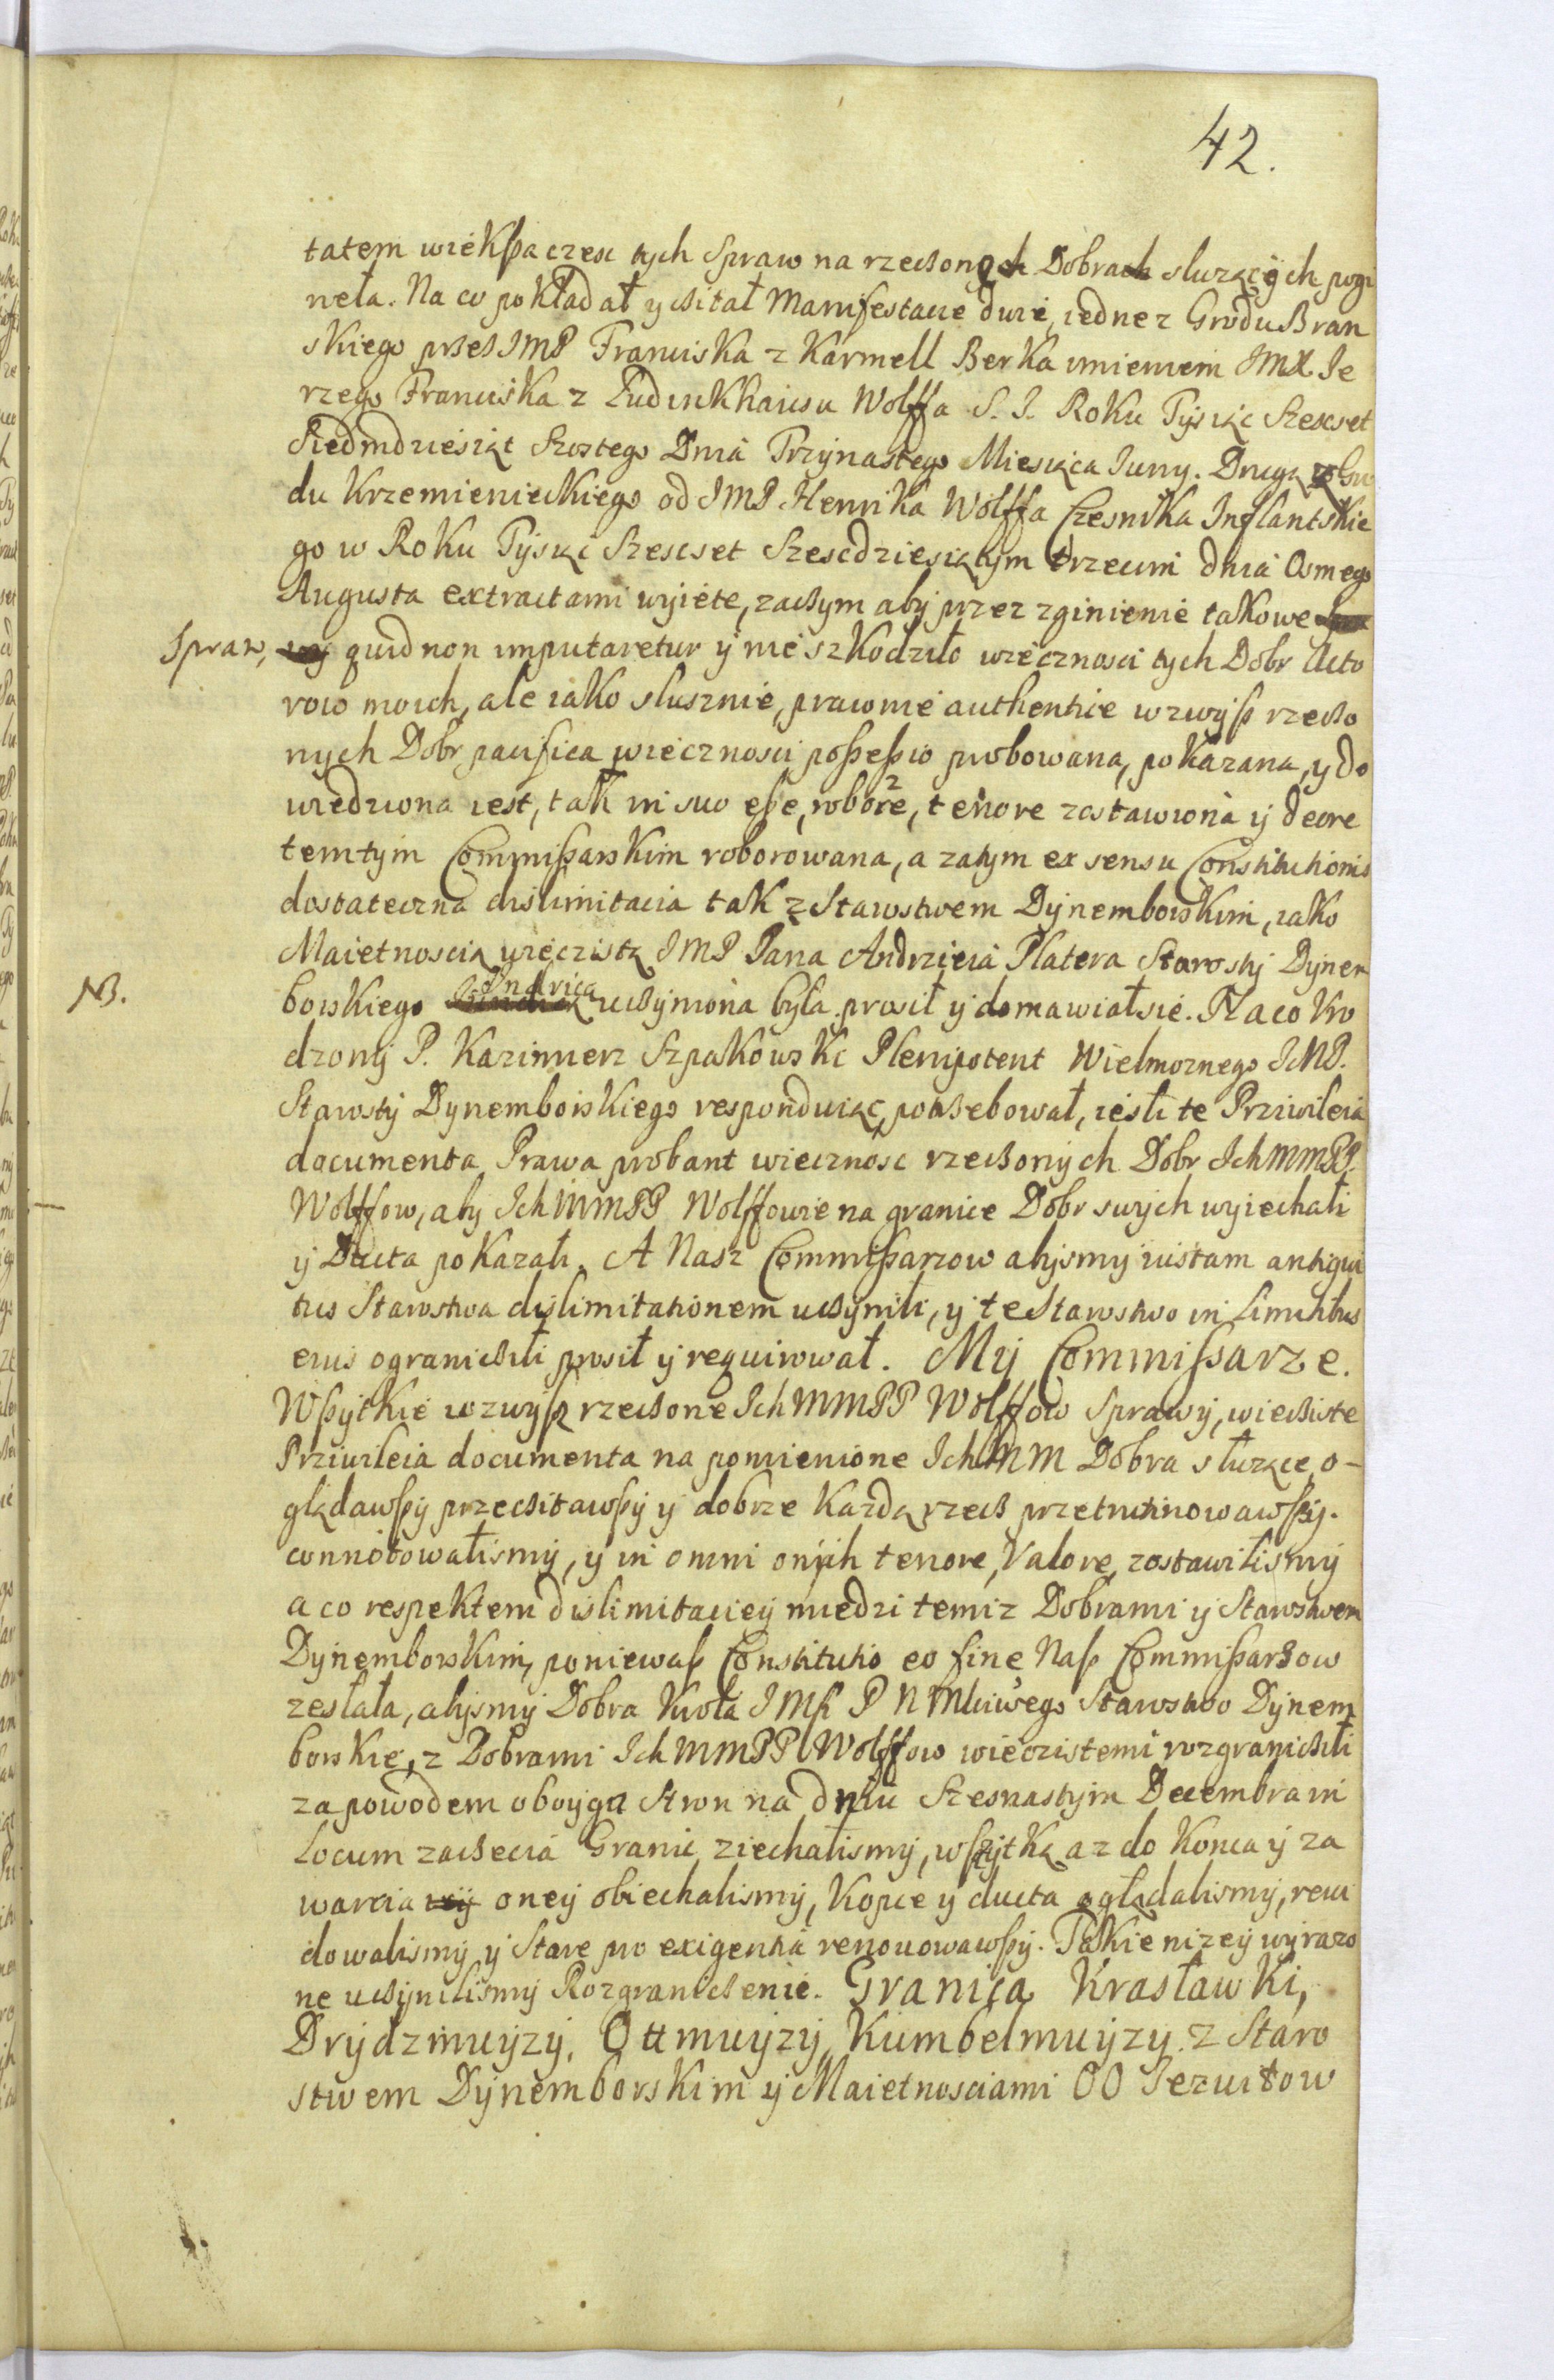 42.
tatem wiekßa czesc tych Spraw na rzeczonych Dobrach sluzących pogi
neła. Na co pokładał y czitał Manifestacie dwie, iedne z Grodu Bran
skiego przez IMP Franciska z Karmell Berka imieniem IMX. Ie
rzego Franciska z Ludinkhausu Wolffa S. I. Roku Tysiąc Szescset
Siedmdziesiąt Szostego Dnia Trzynastego Miesiąca Iuny. Drugą z Gro
du Krzemienieckiego od IMP Henrika Wolffa Czesnika Inflantskie
go w Roku Tysiąc Szescset Szescdziesiątym trzecim dnia Osmego
Augusta extractami wyięte, zaczym aby przez zginienie takowe
Spraw, quid non imputaretur y nie szkodziło wiecznosci tych Dobr Acto
row moich, ale iako slusznie, prawnie authentice wzwyß rzeczo
nych Dobr pacifica wiecznosci poßeßio probowana, pokazana, y do
wiedziona iest, tak in suo eße, robore, tenore zostawiona y decre
tem tym Commißarskim roborowana, a zatym ex sensu Constitutionis
dostateczna dislimitacia tak z Starostwem Dynemborskim, iako
Maietnoscią wieczistą IMP Pana Andrzieia Platera Starosty Dynem
NB.
borskiego Indrica uczyniona byla prosił y domawiał sie. Na co Vro
dzony P. Kazimierz Szpakowski Plenipotent Wielmoznego IMP.
Starosty Dynemborskiego respondując, potrzebował, iesli te Prziwileia
documenta Prawa probant wiecznosc rzeczonych Dobr Ich MMPP.
Wolffow, aby Ich MMPP Wolffowie na granice Dobr swych wyiechali
y Ducta pokazali. A Nasz Commißarzow abysmy iustam antiqui
tus Starostwa dislimitationem uczynili, y te Starostwo in Limitibus
eius ograniczili prosił y requirował. My Commißarze.
Wßytkie wzwyß rzeczone Ich MMPP Wolffow Sprawy, wiecziste
Prziwileia documenta na pomienione Ich MM Dobra sluzące, o-
glądawßy przeczitawßy y dobrze kazdą rzecz przetrutinowawßy.
connotowalismy, y in omni onych tenore, Valore, zostawilismy
a co respektem dislimitaciey miedzi temiz Dobrami y Starostwem
Dynemborskim, poniewaß Constitutio eo fine Naß Commißarzow
zeslała, abysmy Dobra Krola IMſi P N Młciwego Starostwo Dynem
borskie, z Dobrami Ich MMPP Wolffow wieczistemi rozgraniczili
za powodem oboyga stron na dniu Szesnastym Decembra in
Locum zaczecia Granic ziechalismy, wßytką az do konca y za
warcia oney obiechalismy, kopce y ducta oglądalismy, rewi
dowalismy y Stare pro exigentia renouowawßy. Takie nizey wyrazo
ne uczynilismy Rozgraniczenie. Granica Krasławki,
Drydzmuyzy, Ottmuyzy, Kumbelmuyzy z Staro
stwem Dynemborskim y Maietnosciami OO Iezuitow